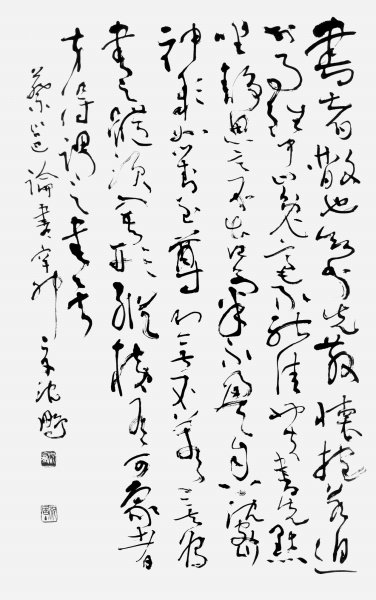 書者散也欲書先散懷抱若迫
於事雖中山兔毫不能佳也夫書先默
坐靜思言不出口氣不盈息沉密
神彩如對至尊則無不善矣為
書之體須入其形縱橫有可象者
方得謂之書矣
蔡邕論書 沈鵬